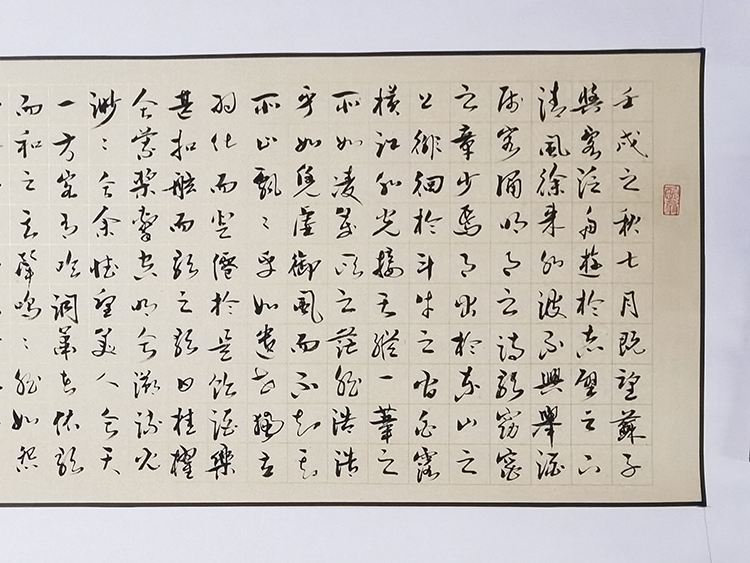 壬戌之秋七月既望蘇子
與客泛舟遊於赤壁之下
清風徐來水波不興舉酒
屬客誦明月之詩歌窈窕
之章少焉月出於東山之
上徘徊於斗牛之間白露
橫江水光接天縱一葦之
所如凌萬頃之茫然浩浩
乎如憑虛御風而不知其
所止飄〻乎如遺世獨立
羽化而登僊於是飲酒樂
甚扣舷而歌之歌曰桂櫂
兮蘭槳擊空明兮泝流光
渺〻兮余懷望美人兮天
一方客有吹洞簫者依歌
而和之其聲嗚〻然如怨